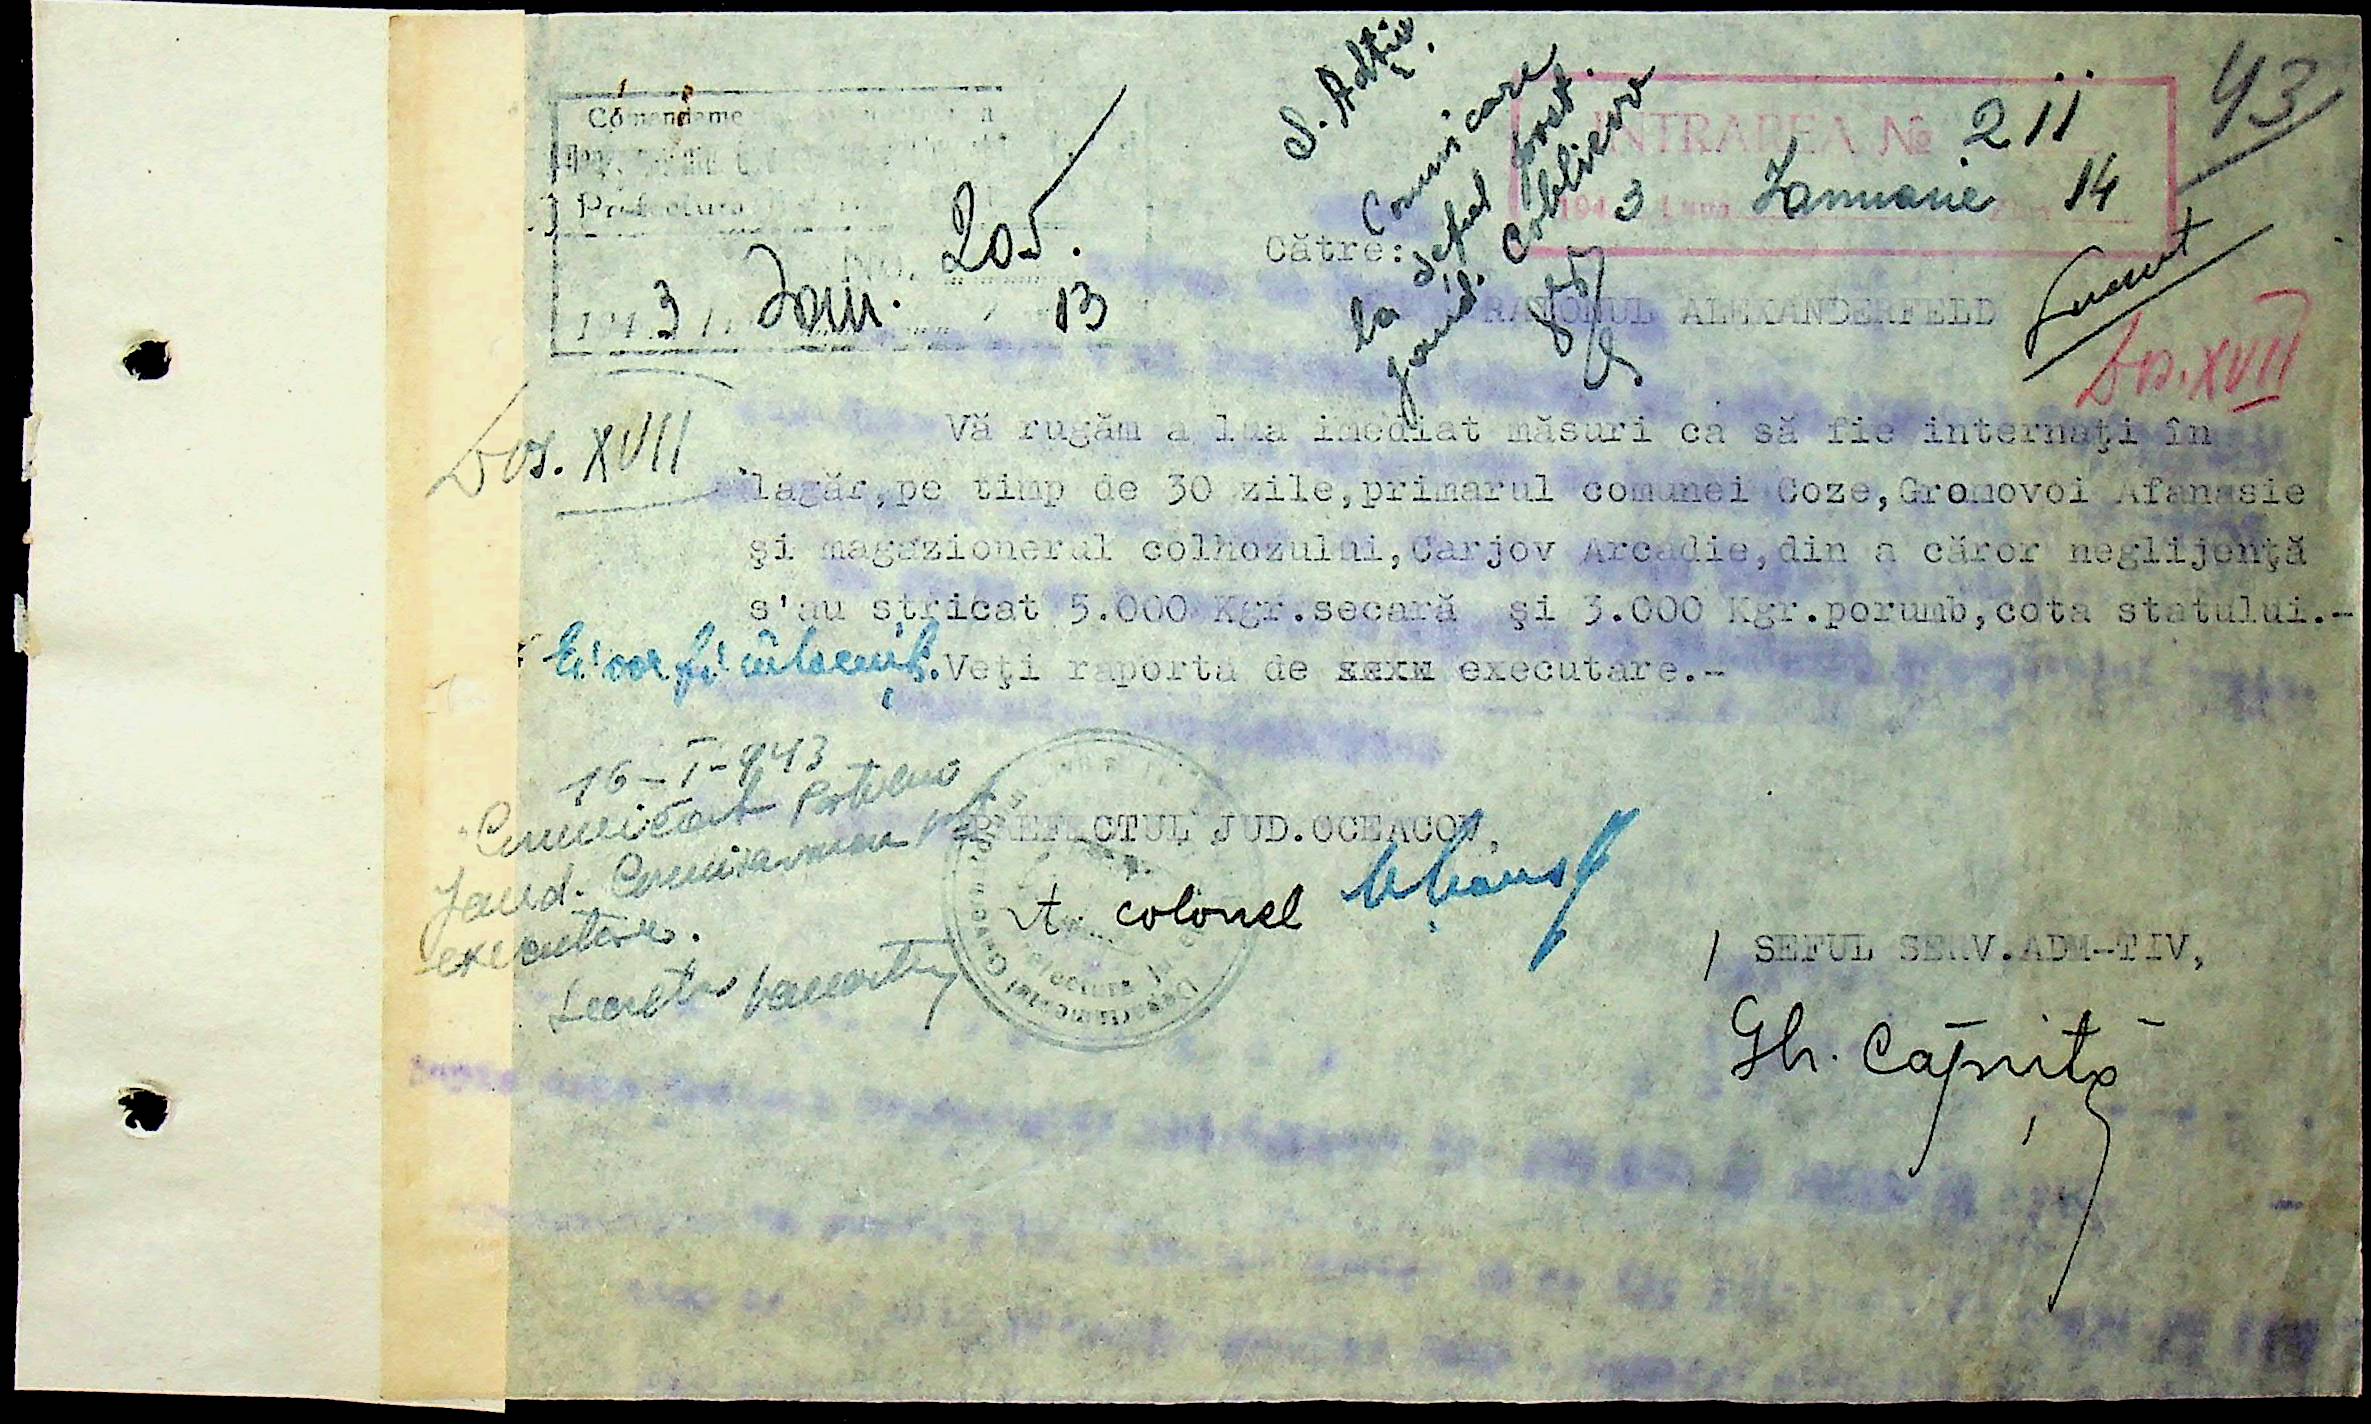 43
No. 205.
194 3 Ian. 13
INTRAREA № 211
194 3 Luna Ianuarie 14
S. Adtiv.
Comunicare
la șeful post
jand.
Către:
RAIONUL ALEXANDERFELD
Dos. XVII
Dos. XVII
Vă rugăm a lua imediat măsuri ca să fie internaţi în
lagăr,pe timp de 30 zile,primarul comunei Coze,Gromovoi Afanasie
şi magazionerul colhozului,Carjov Arcadie,din a căror neglijenţă
s'au stricat 5.000 Kgr.secară şi 3.000 Kgr.porumb,cota statului.-
Ei vor fi înlocuiți. Veţi raporta de executare.-
16-I-943
Comunicat Postului
Jand.
executare.
PREFECTUL JUD.OCEACOV,
Lt. colonel
/ SEFUL SERV.ADM-TIV,
Gh. Căpniță